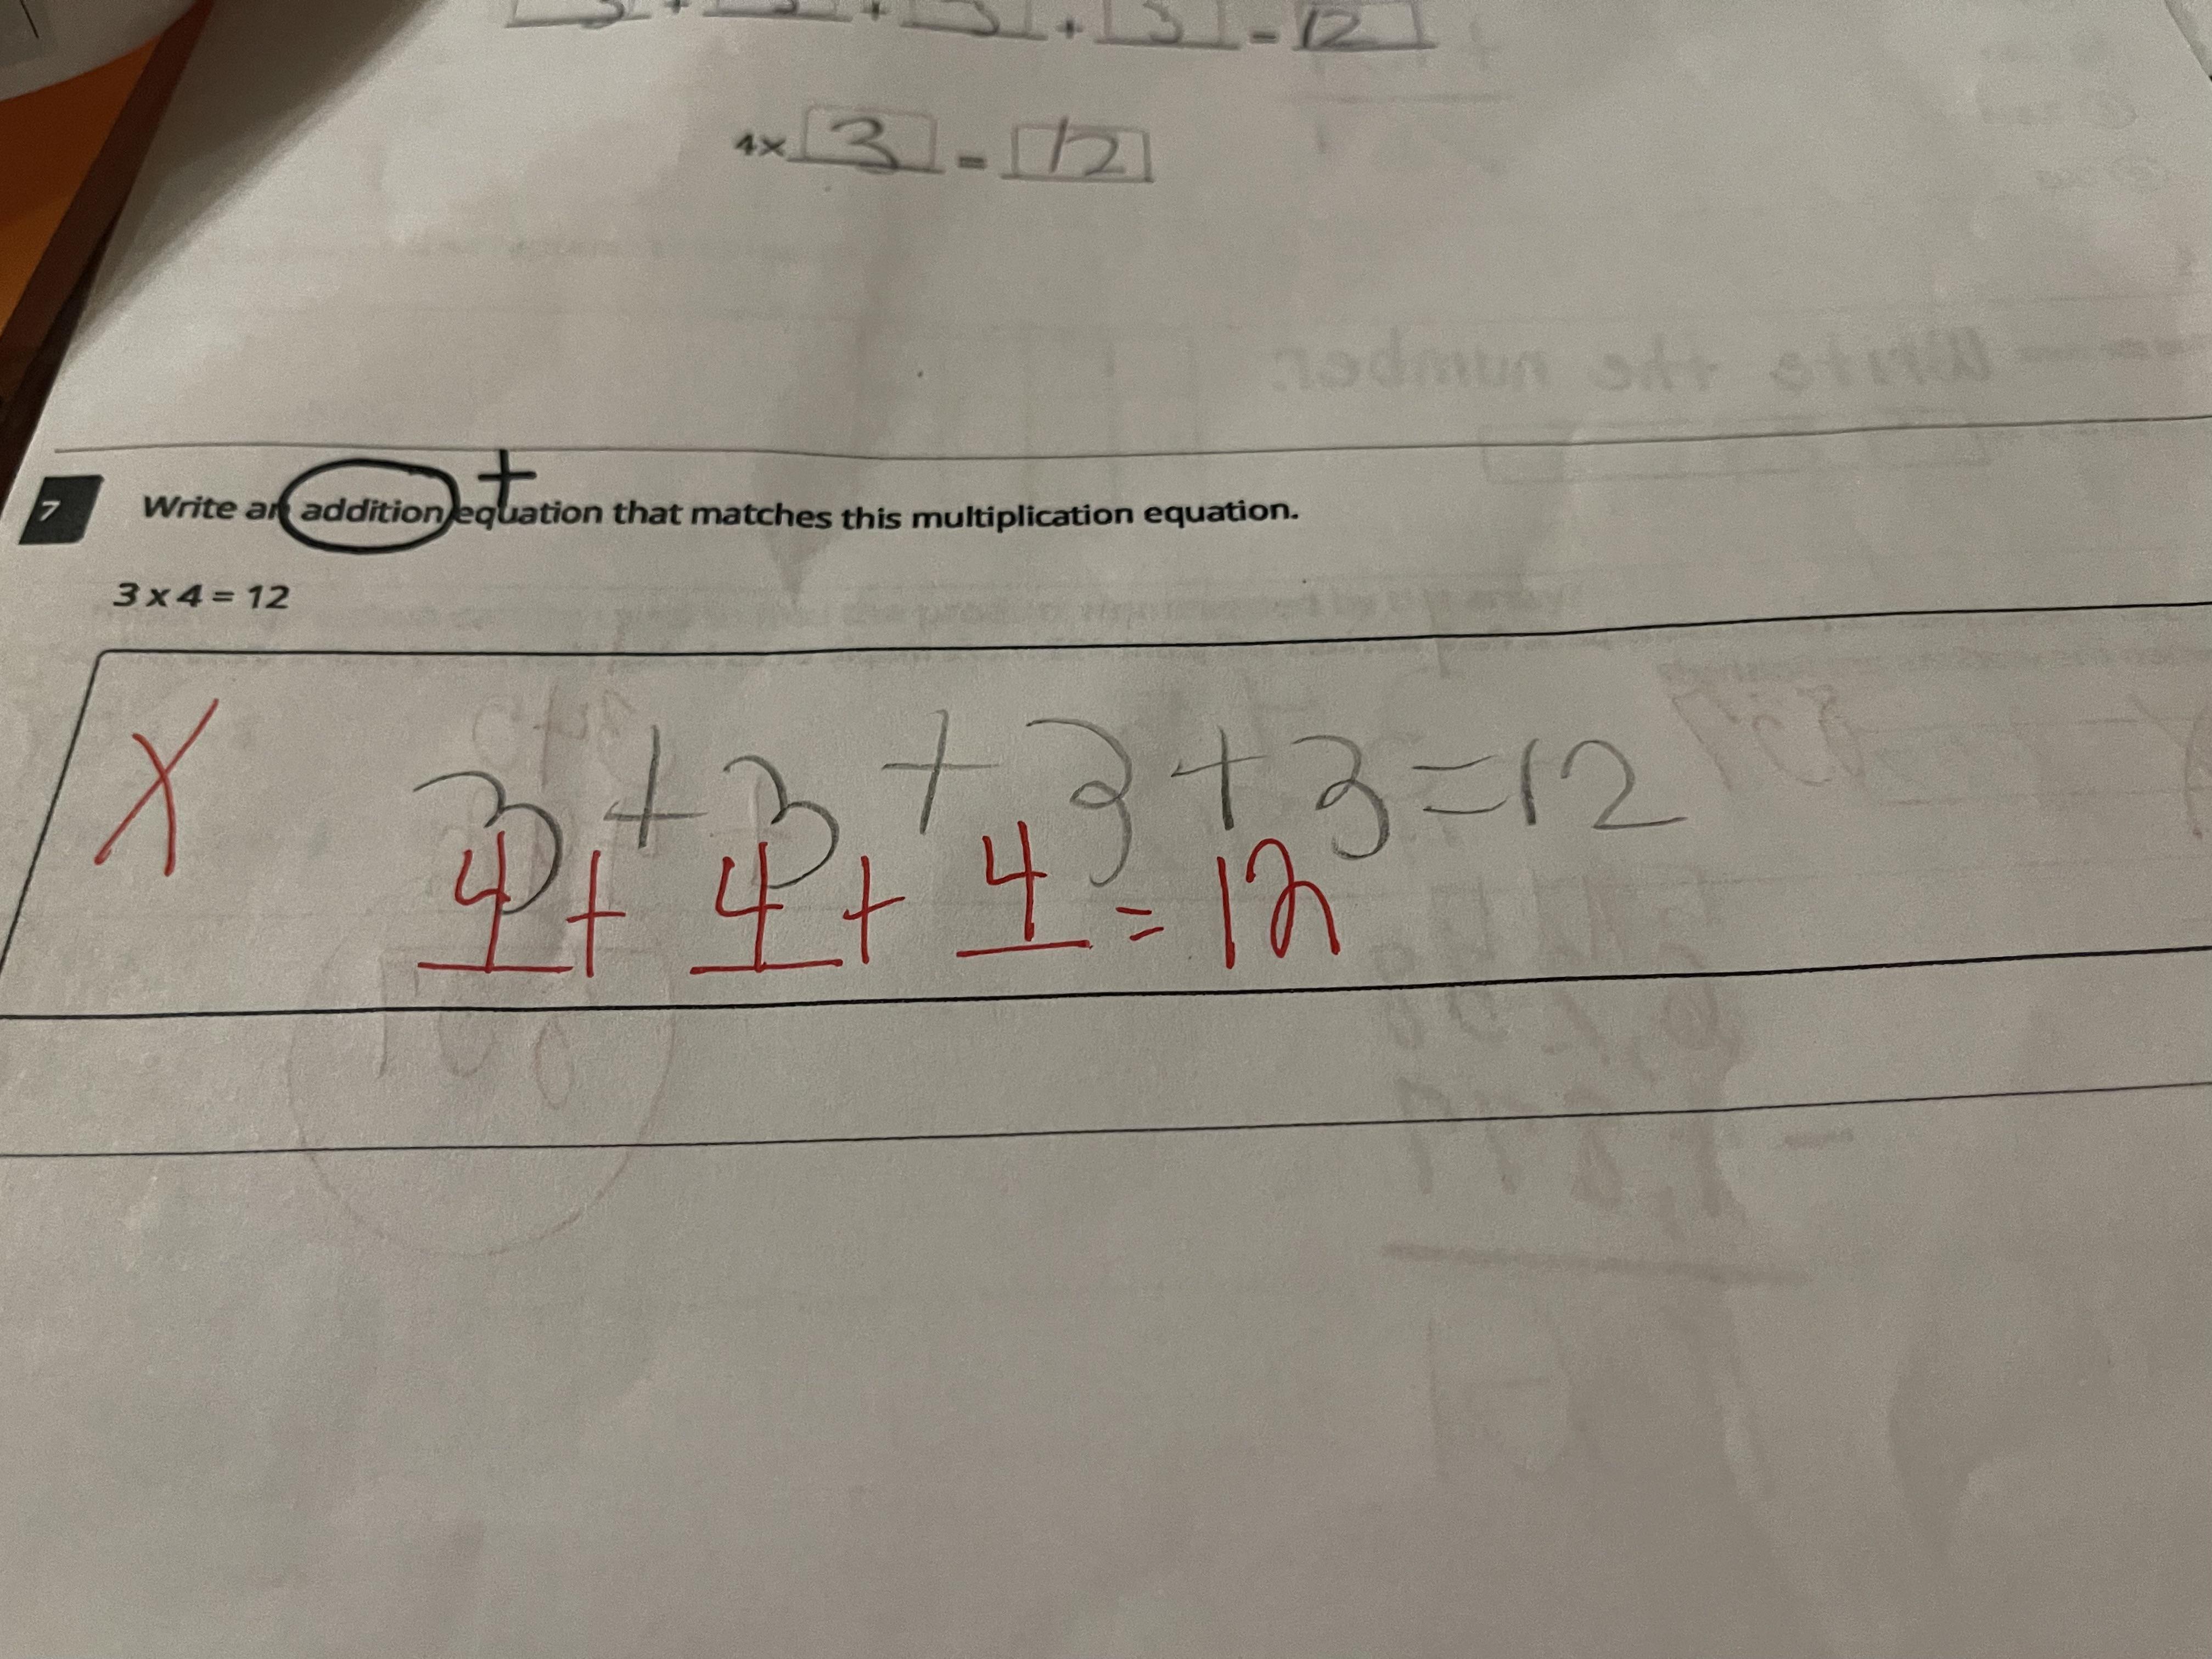 3 + 3 + 3 + 3 = 12
4x 3 = 12
Write the number.
7 Write an addition equation that matches this multiplication equation.
+
3 x 4 = 12
X 3 + 3 + 3 + 3 = 12
4 + 4 + 4 = 12